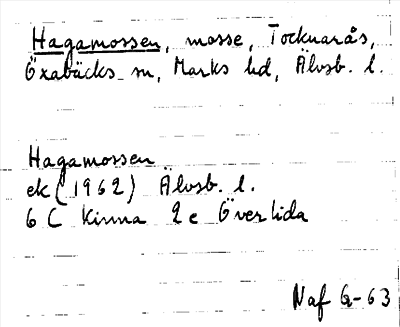 Hagamossen, mosse, Tocknarås,
Öxabäcks sn, Marks hd, Älvsb. l.
Hagamossen
ek (1962) Älvsb. l.
6 C Kinna 2 e Överlida
Naf G-63